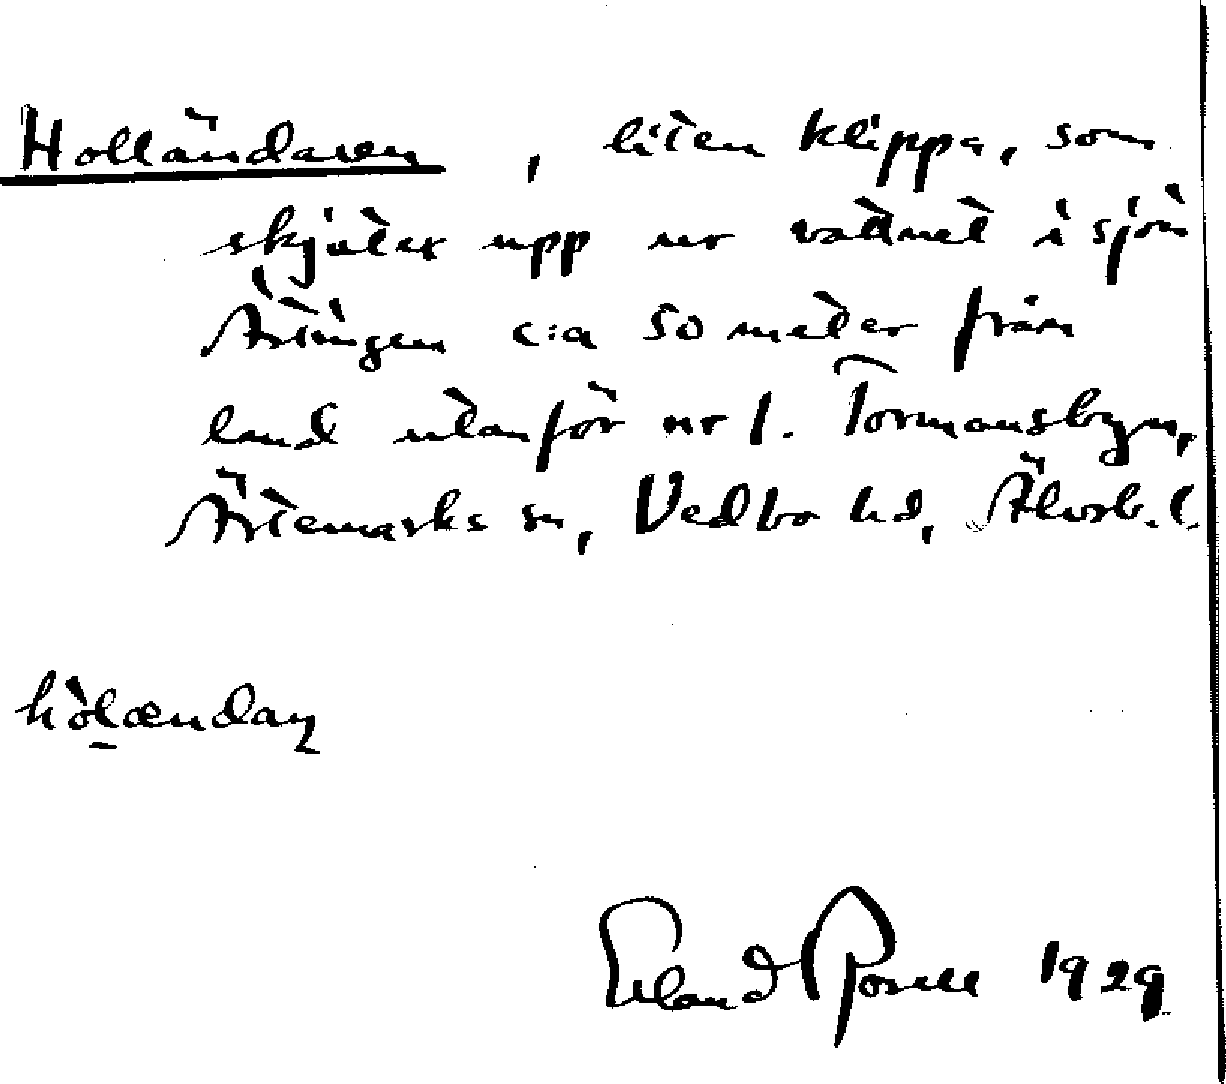 Holländaren, liten klippa, som
skjuter upp ur vattnet i sjön
Ärtingen c:a 50 meter från
land utanför nr 1. Tormansbyn,
Ärtemarks sn, Vedbo hd, Älvsb. l.
Erland Rosell 1929